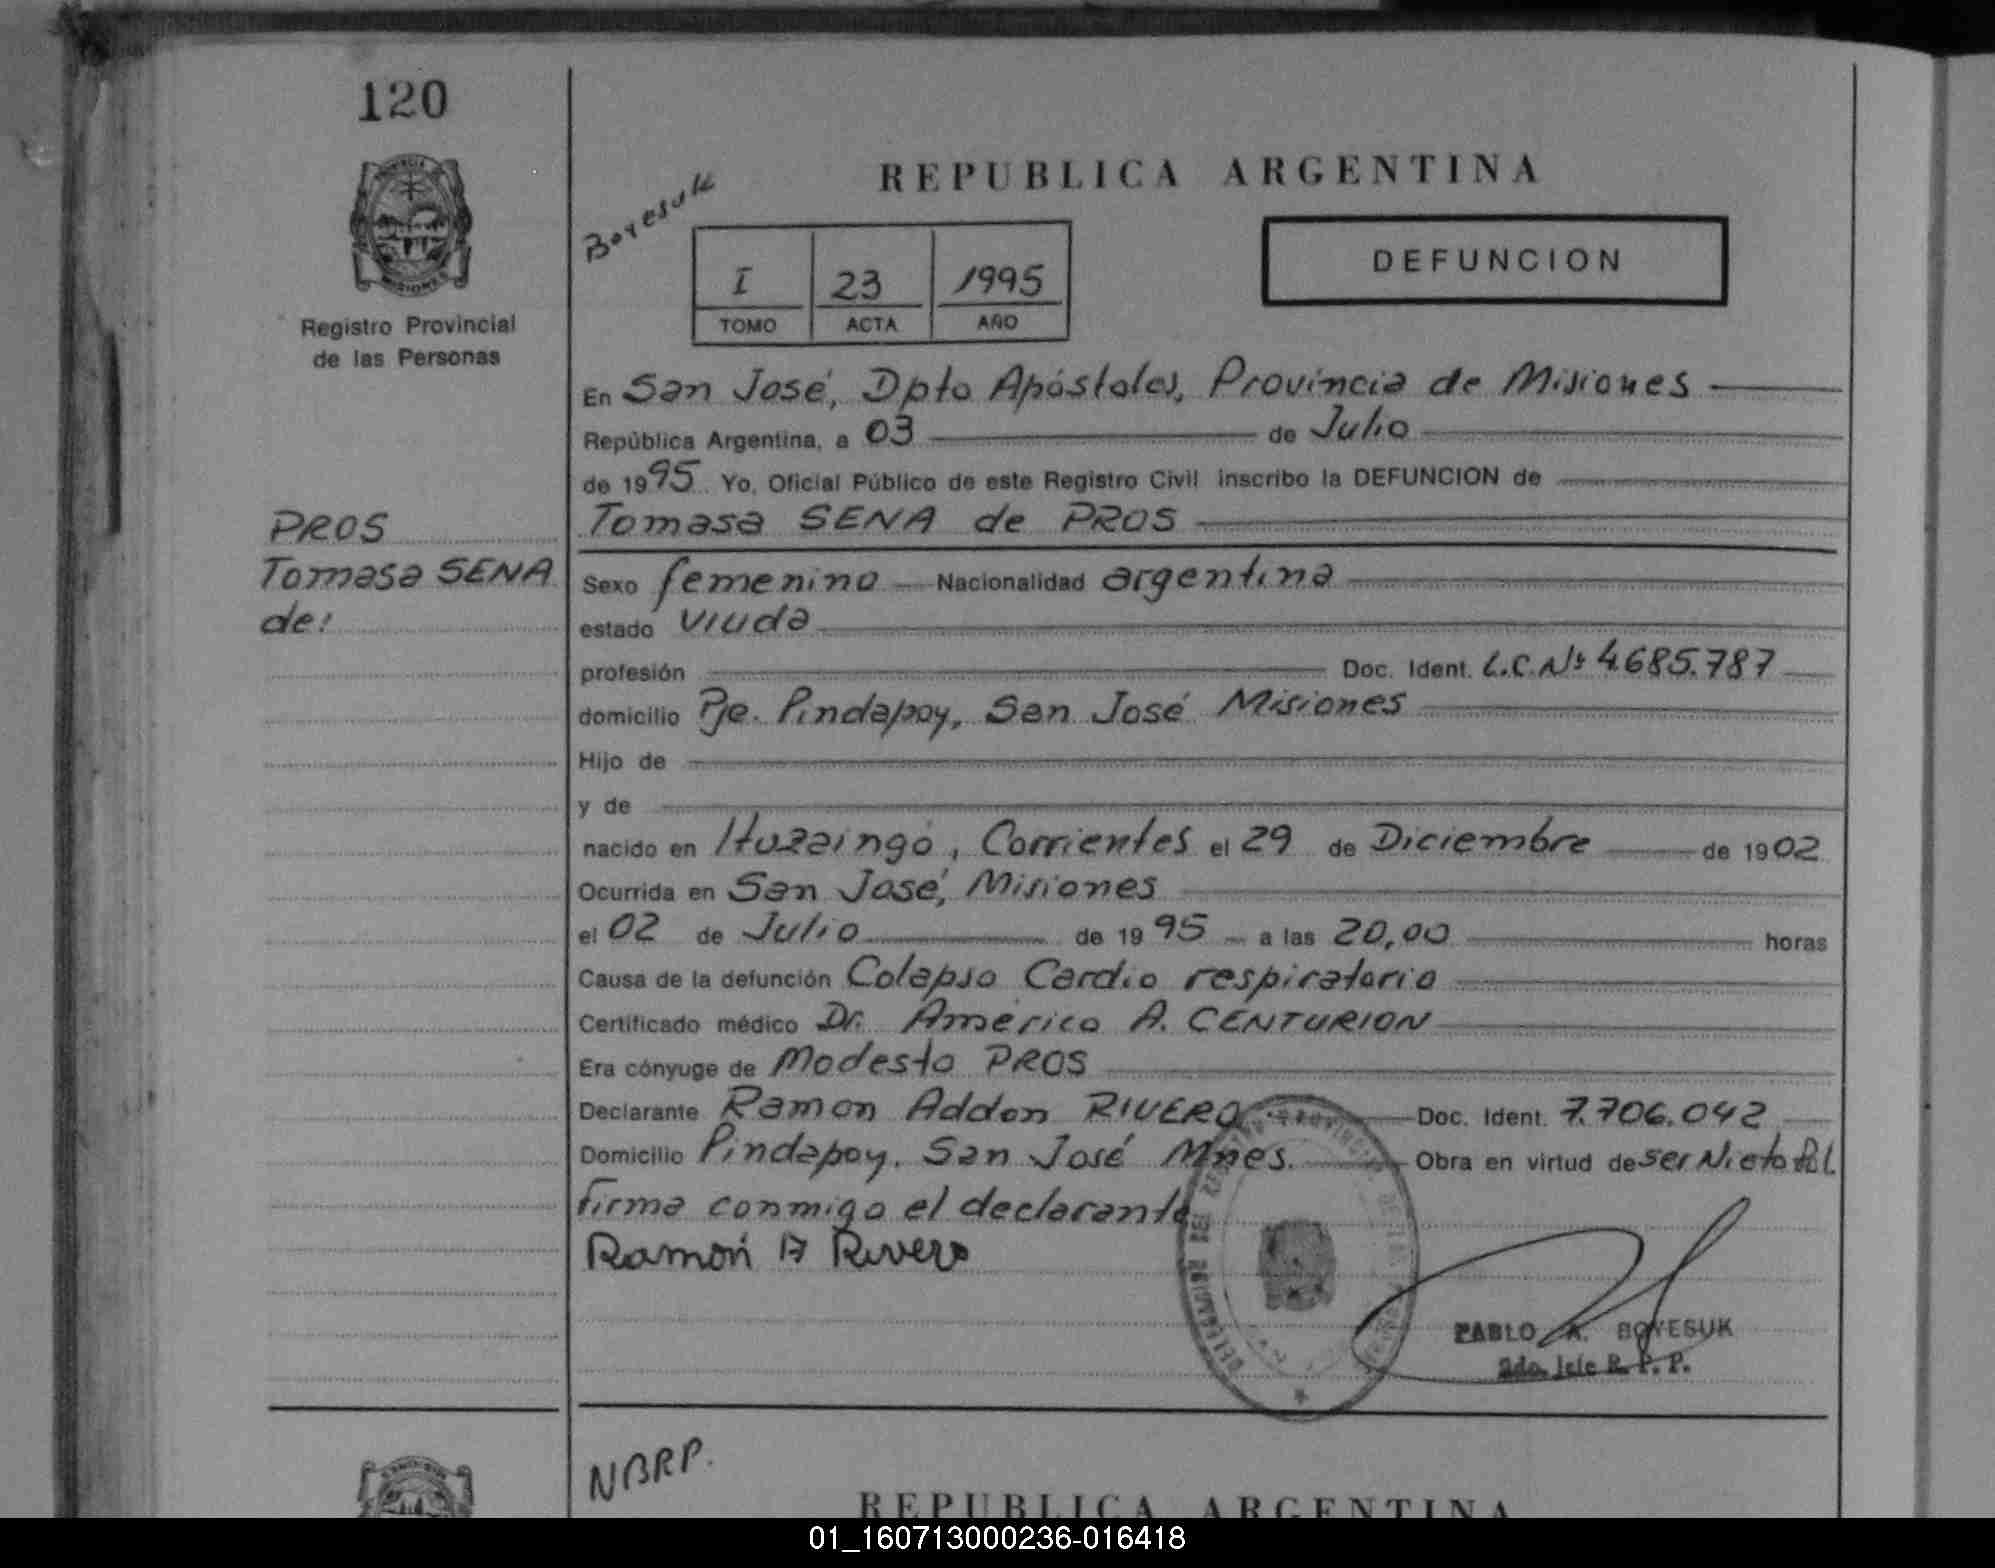 120
REPUBLICA ARGENTINA
Boyesuk
I 23 1995
TOMO ACTA AÑO
DEFUNCION
MISIONES
Registro Provincial
de las Personas
En San José, Dpto Apóstoles, Provincia de Misiones
República Argentina, a 03 de Julio
de 1995 Yo, Oficial Público de este Registro Civil inscribo la DEFUNCION de
Tomasa SENA de PROS
PROS
Tomasa SENA
de:
Sexo femenino Nacionalidad argentina
estado viuda
profesión Doc. Ident. L.C.Nº 4.685.787
domicilio Pje. Pindapoy, San José Misiones
Hijo de
y de
nacido en Ituzaingó, Corrientes el 29 de Diciembre de 1902
Ocurrida en San José, Misiones
el 02 de Julio de 1995 a las 20,00 horas
Causa de la defunción Colapso Cardio respiratorio
Certificado médico Dr. Américo A. CENTURION
Era cónyuge de Modesto PROS
Declarante Ramon Addon RIVERO Doc. Ident. 7.706.042
Domicilio Pindapoy, San José Mnes. Obra en virtud de ser Nieto Pol.
firma conmigo el declarante
Ramón A Rivero
PABLO A. BOYESUK
2do. Jefe R. P. P.
NBRP.
REPUBLICA ARGENTINA
01_160713000236-016418